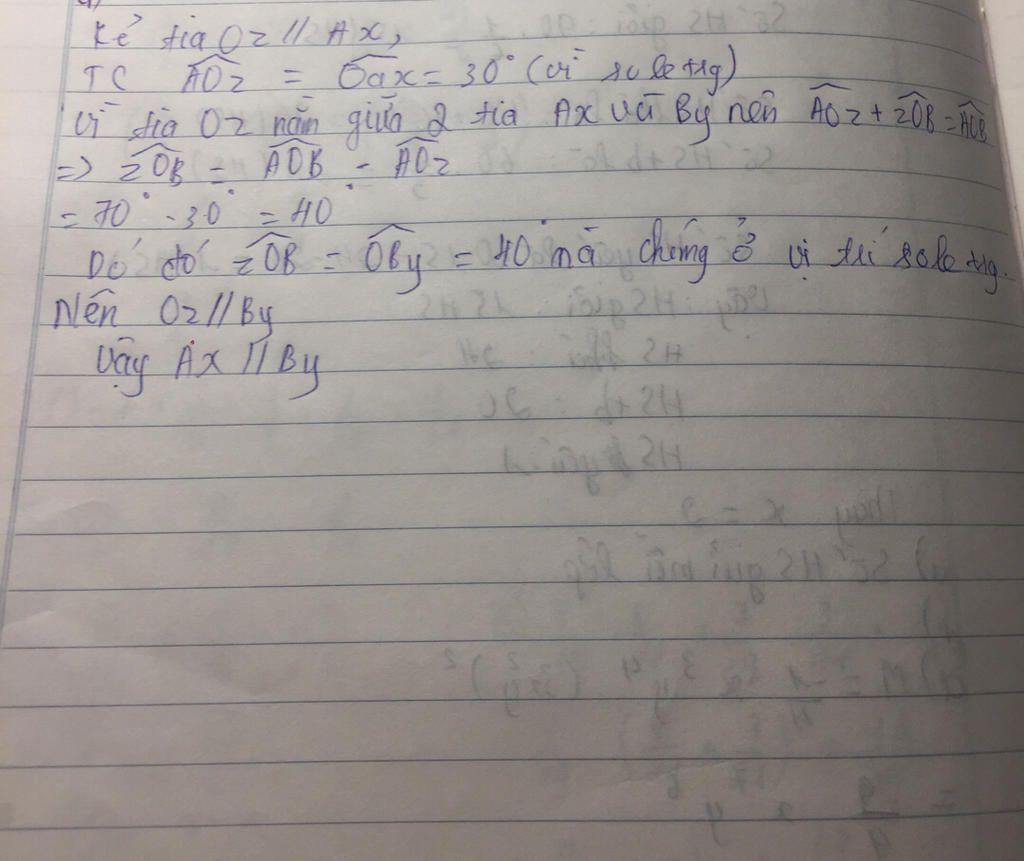 Kẻ tia Oz // Ax,
TC AOz = Oax = 30° (vì so le trg)
Vì tia Oz nằm giữa 2 tia Ax và By nên AOz + zOB = AOB
=> zOB = AOB - AOz
= 70° - 30° = 40°
Dó đó zOB = OBy = 40° mà chúng ở vị trí so le trg.
Nên Oz // By
Vậy Ax // By